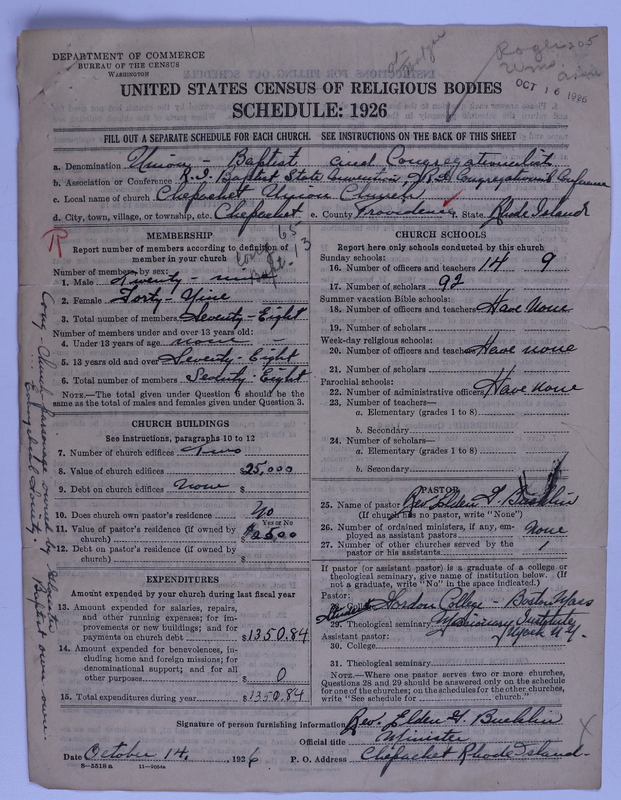 DEPARTMENT OF COMMERCE
BUREAU OF THE CENSUS
WASHINGTON
OCT 16 1926
UNITED STATES CENSUS OF RELIGIOUS BODIES
SCHEDULE: 1926
FILL OUT A SEPARATE SCHEDULE FOR EACH CHURCH. SEE INSTRUCTIONS ON THE BACK OF THIS SHEET
a. Denomination Union - Baptist and Congregationalist
b. Association or Conference R.I. Baptist State Convention, R.I. Congregational Conference
c. Local name of church Chepachet Union Church
d. City, town, village, or township, etc. Chepachet e. County Providence State Rhode Island
MEMBERSHIP
Report number of members according to definition of
member in your church
Cong 65
Bapt. 13
Number of members by sex:
1. Male Twenty - nine
2. Female Forty - Nine
3. Total number of members Seventy - Eight
Number of members under and over 13 years old:
4. Under 13 years of age none -
5. 13 years old and over Seventy - Eight
6. Total number of members Seventy - Eight
NOTE.—The total given under Question 6 should be the
same as the total of males and females given under Question 3.
CHURCH BUILDINGS
See instructions, paragraphs 10 to 12
7. Number of church edifices Two
8. Value of church edifices $25,000
9. Debt on church edifices None $
10. Does church own pastor's residence? No
Yes or No
11. Value of pastor's residence (if owned by
church) $2500
12. Debt on pastor's residence (if owned by
church) $
EXPENDITURES
Amount expended by your church during last fiscal year
13. Amount expended for salaries, repairs,
and other running expenses; for im-
provements or new buildings; and for
payments on church debt $1350.84
14. Amount expended for benevolences, in-
cluding home and foreign missions; for
denominational support; and for all
other purposes $ 0
15. Total expenditures during year $1350.84
CHURCH SCHOOLS
Report here only schools conducted by this church
Sunday schools:
16. Number of officers and teachers 14 9
17. Number of scholars 92
Summer vacation Bible schools:
18. Number of officers and teachers Have None
19. Number of scholars
Week-day religious schools:
20. Number of officers and teachers Have none
21. Number of scholars
Parochial schools:
22. Number of administrative officers Have none
23. Number of teachers—
a. Elementary (grades 1 to 8)
b. Secondary
24. Number of scholars—
a. Elementary (grades 1 to 8)
b. Secondary
PASTOR
25. Name of pastor Rev. Elden G. Bucklin
(If church has no pastor, write "None")
26. Number of ordained ministers, if any, em-
ployed as assistant pastors None
27. Number of other churches served by the
pastor or his assistants 1
If pastor (or assistant pastor) is a graduate of a college or
theological seminary, give name of institution below. (If
not a graduate, write "No" in the space indicated.)
Pastor:
Student Gordon College - Boston Mass
29. Theological seminary Missionary Institute
Nyack N.Y.
Assistant pastor:
30. College
31. Theological seminary
NOTE.—Where one pastor serves two or more churches,
Questions 28 and 29 should be answered only on the schedule
for one of the churches; on the schedules for the other churches,
write "See schedule for church."
Signature of person furnishing information Rev. Elden G. Bucklin
Official title Minister
Date October 14, 1926 P. O. Address Chepachet Rhode Island
S-5518 a 11-9054a
Cong Church Parsonage owned by Gloucester
Evangelical Society
Baptist own own.